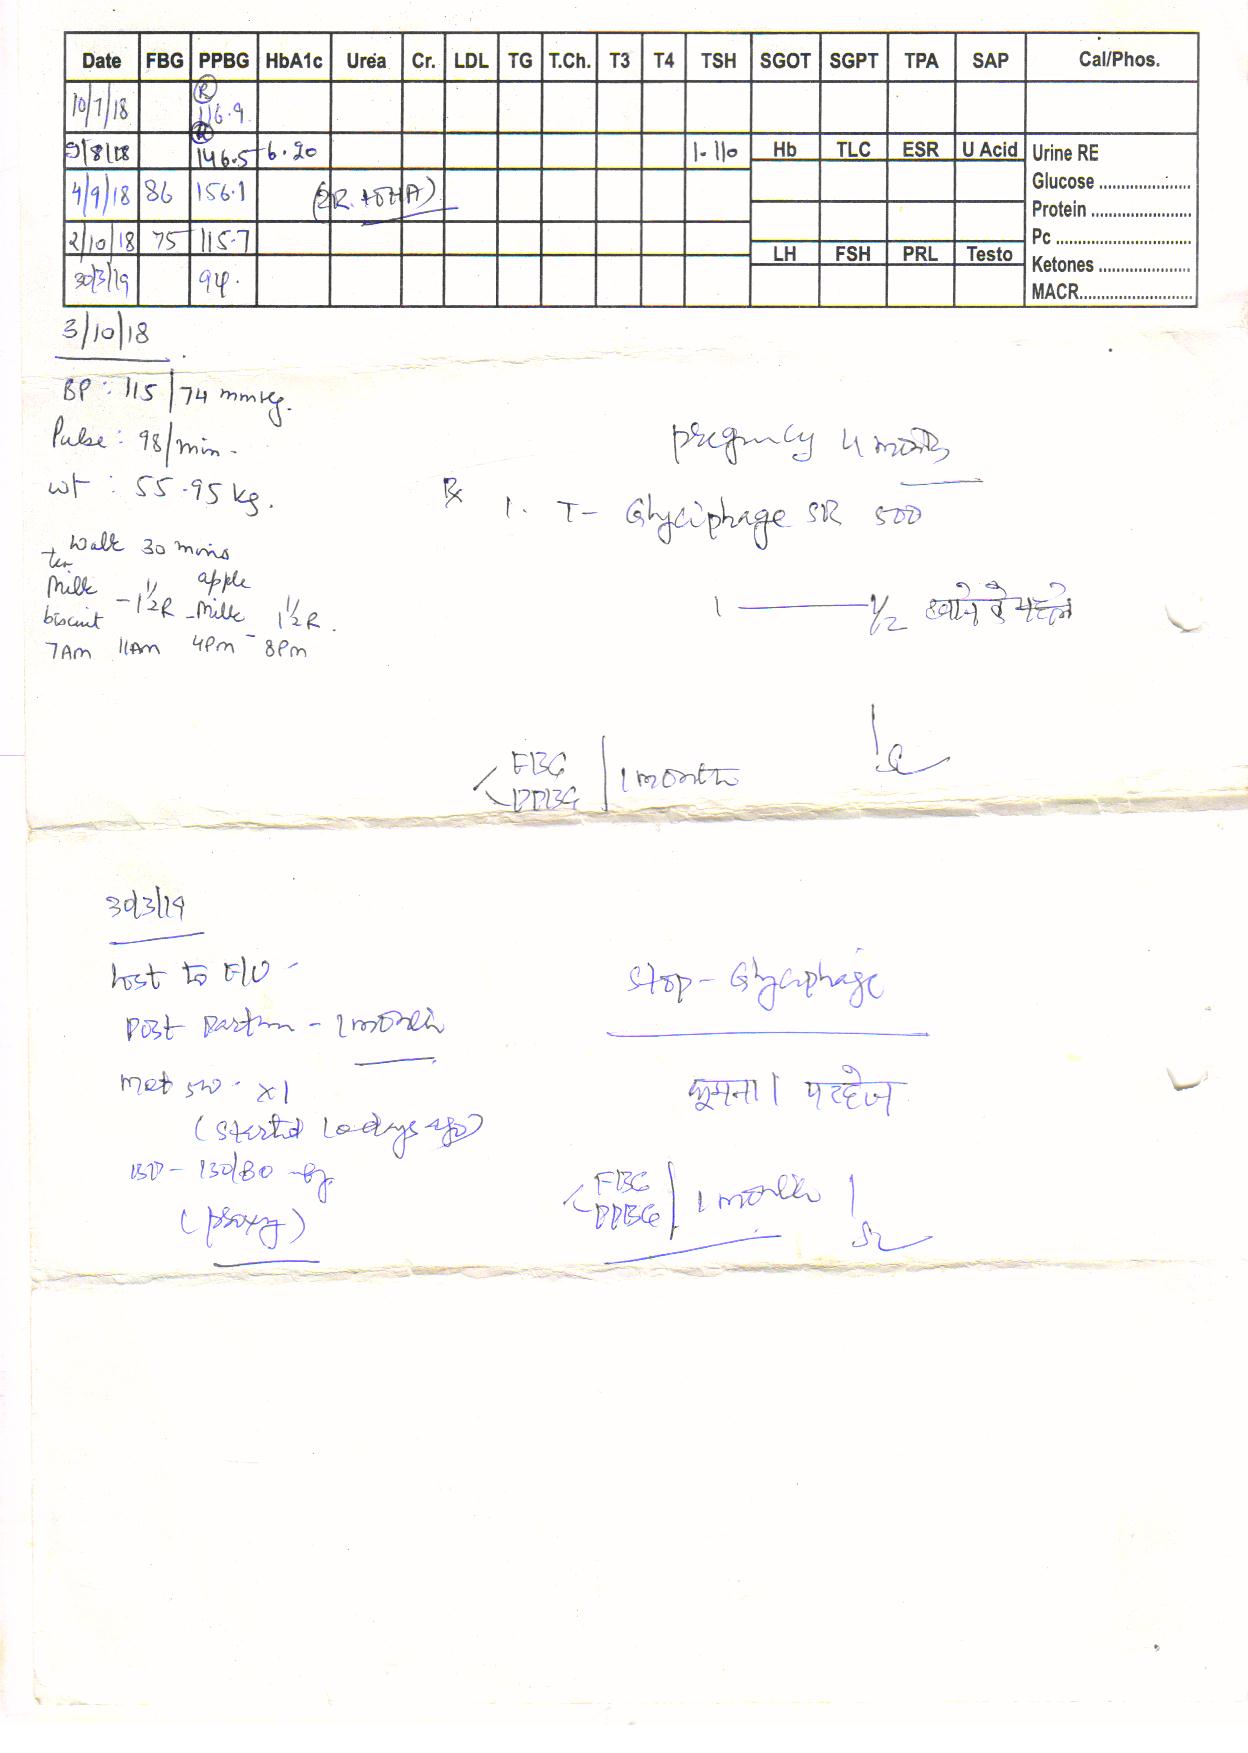 Date FBG PPBG HbA1c Urea Cr. LDL TG T.Ch. T3 T4 TSH SGOT SGPT TPA SAP Cal/Phos.
10/7/18 (R) 116.9
9/8/18 (R) 146.5 6.20 1.110 Hb TLC ESR U Acid Urine RE
Glucose ......................
4/9/18 86 156.1 (2R + OHA)
Protein ........................
2/10/18 75 115.7
Pc ................................
LH FSH PRL Testo
Ketones ......................
30/3/19 94.
MACR...........................
3/10/18
BP : 115/74 mmHg.
Pulse : 98/min.
wt : 55.95 kg.
pregnancy 4 months
Rx 1. T- Glyciphage SR 500
1 ——— 1/2 खाने से पहले
Walk 30 mins
Milk biscuit - 1 1/2 R - apple Milk - 1 1/2 R.
7Am 11Am 4Pm 8Pm
FBG
PPBG | 1 month
30/3/19
Lost to F/U -
Post Partum - 1 month
Met 500 x 1
(Started 10 days ago)
BP - 130/80
(proxy)
Stop - Glyciphage
घूमना। परहेज
FBG
PPBG | 1 month